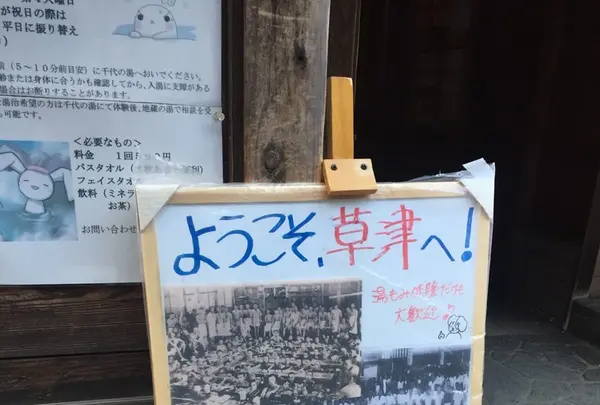 が祝日の際は
平日に振り替え
(5～10分前目安)に千代の湯へおいでください。
または身体に合うかも確認してから、入湯に支障がある
場合はお断りすることがあります。
湯治希望の方は千代の湯にて体験後、地蔵の湯で相談を受
も可能です。
＜必要なもの＞
料金 1回
バスタオル
フェイスタオ
飲料（ミネラ
お茶）
お問い合わせ
ようこそ、草津へ!
湯もみ体験だけも
大歓迎♪